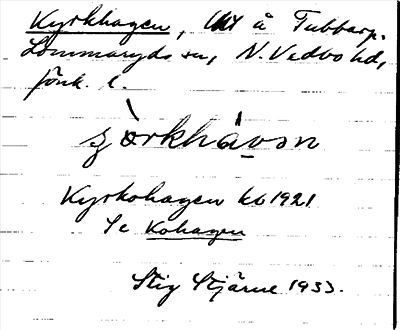 Kyrkhagen, lht å Tubbarp.
Lommaryds sn, N. Vedbo hd,
Jönk. l.
Kyrkohagen kb 1921
Se Kohagen
Stig Stjärne 1933.